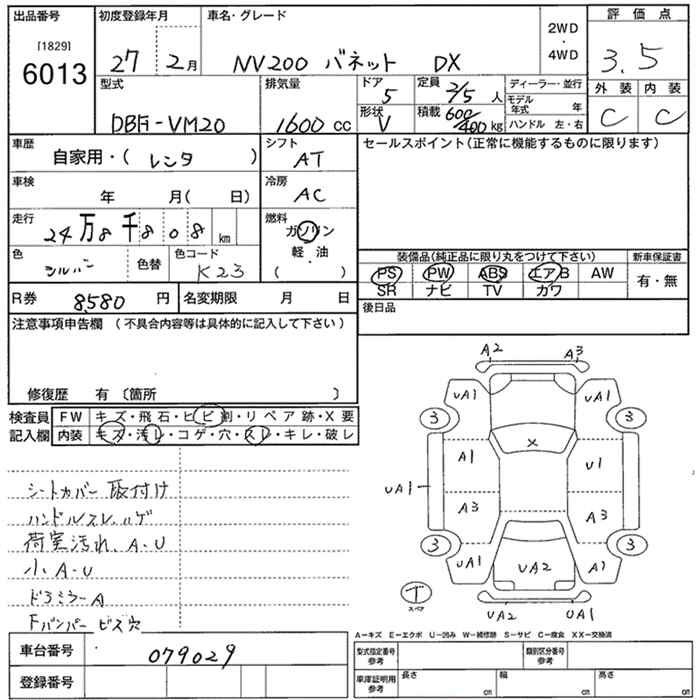 出品番号
[1829]
6013
初度登録年月
27 2月
車名・グレード
NV200 バネット DX
2WD
・
4WD
評価点
3.5
型式
DBF-VM20
排気量
1600 cc
ドア
5
形状
V
定員
2/5 人
積載
600/400 kg
ディーラー・並行
モデル年式 年
ハンドル 左・右
外装 内装
C C
車歴
自家用・( レンタ )
シフト
AT
セールスポイント(正常に機能するものに限ります)
車検
年 月( 日)
冷房
AC
走行
24万8千808 km
燃料
ガソリン
軽・油
( )
色
シルバー
色替
色コード
K23
装備品(純正品に限り丸をつけて下さい)
新車保証書
PS PW ABS エアB AW
SR ナビ TV カワ
有・無
R券 8,580 円
名変期限 月 日
後日品
注意事項申告欄 (不具合内容等は具体的に記入して下さい)
修復歴 有 〔箇所 〕
検査員記入欄
FW キズ・飛石・ヒビ割・リペア跡・X要
内装 キズ・汚レ・コゲ・穴・スレ・キレ・破レ
シートカバー取付け
ハンドルスレ、ハゲ
荷室汚れ、A-U
小A-U
ドアミラーA
Fバンパービズ穴
A2 A3
UA1 UA1
3 3
X
A1 U1
UA1
A3 A3
3 3
UA1 UA2 A1
T
スペア
UA2 UA1
A-キズ E-エクボ U-凹み W-補修跡 S-サビ C-腐食 XX-交換済
車台番号 079029
登録番号
型式指定番号 参考
類別区分番号 参考
車庫証明用 参考
長さ cm
幅 cm
高さ cm